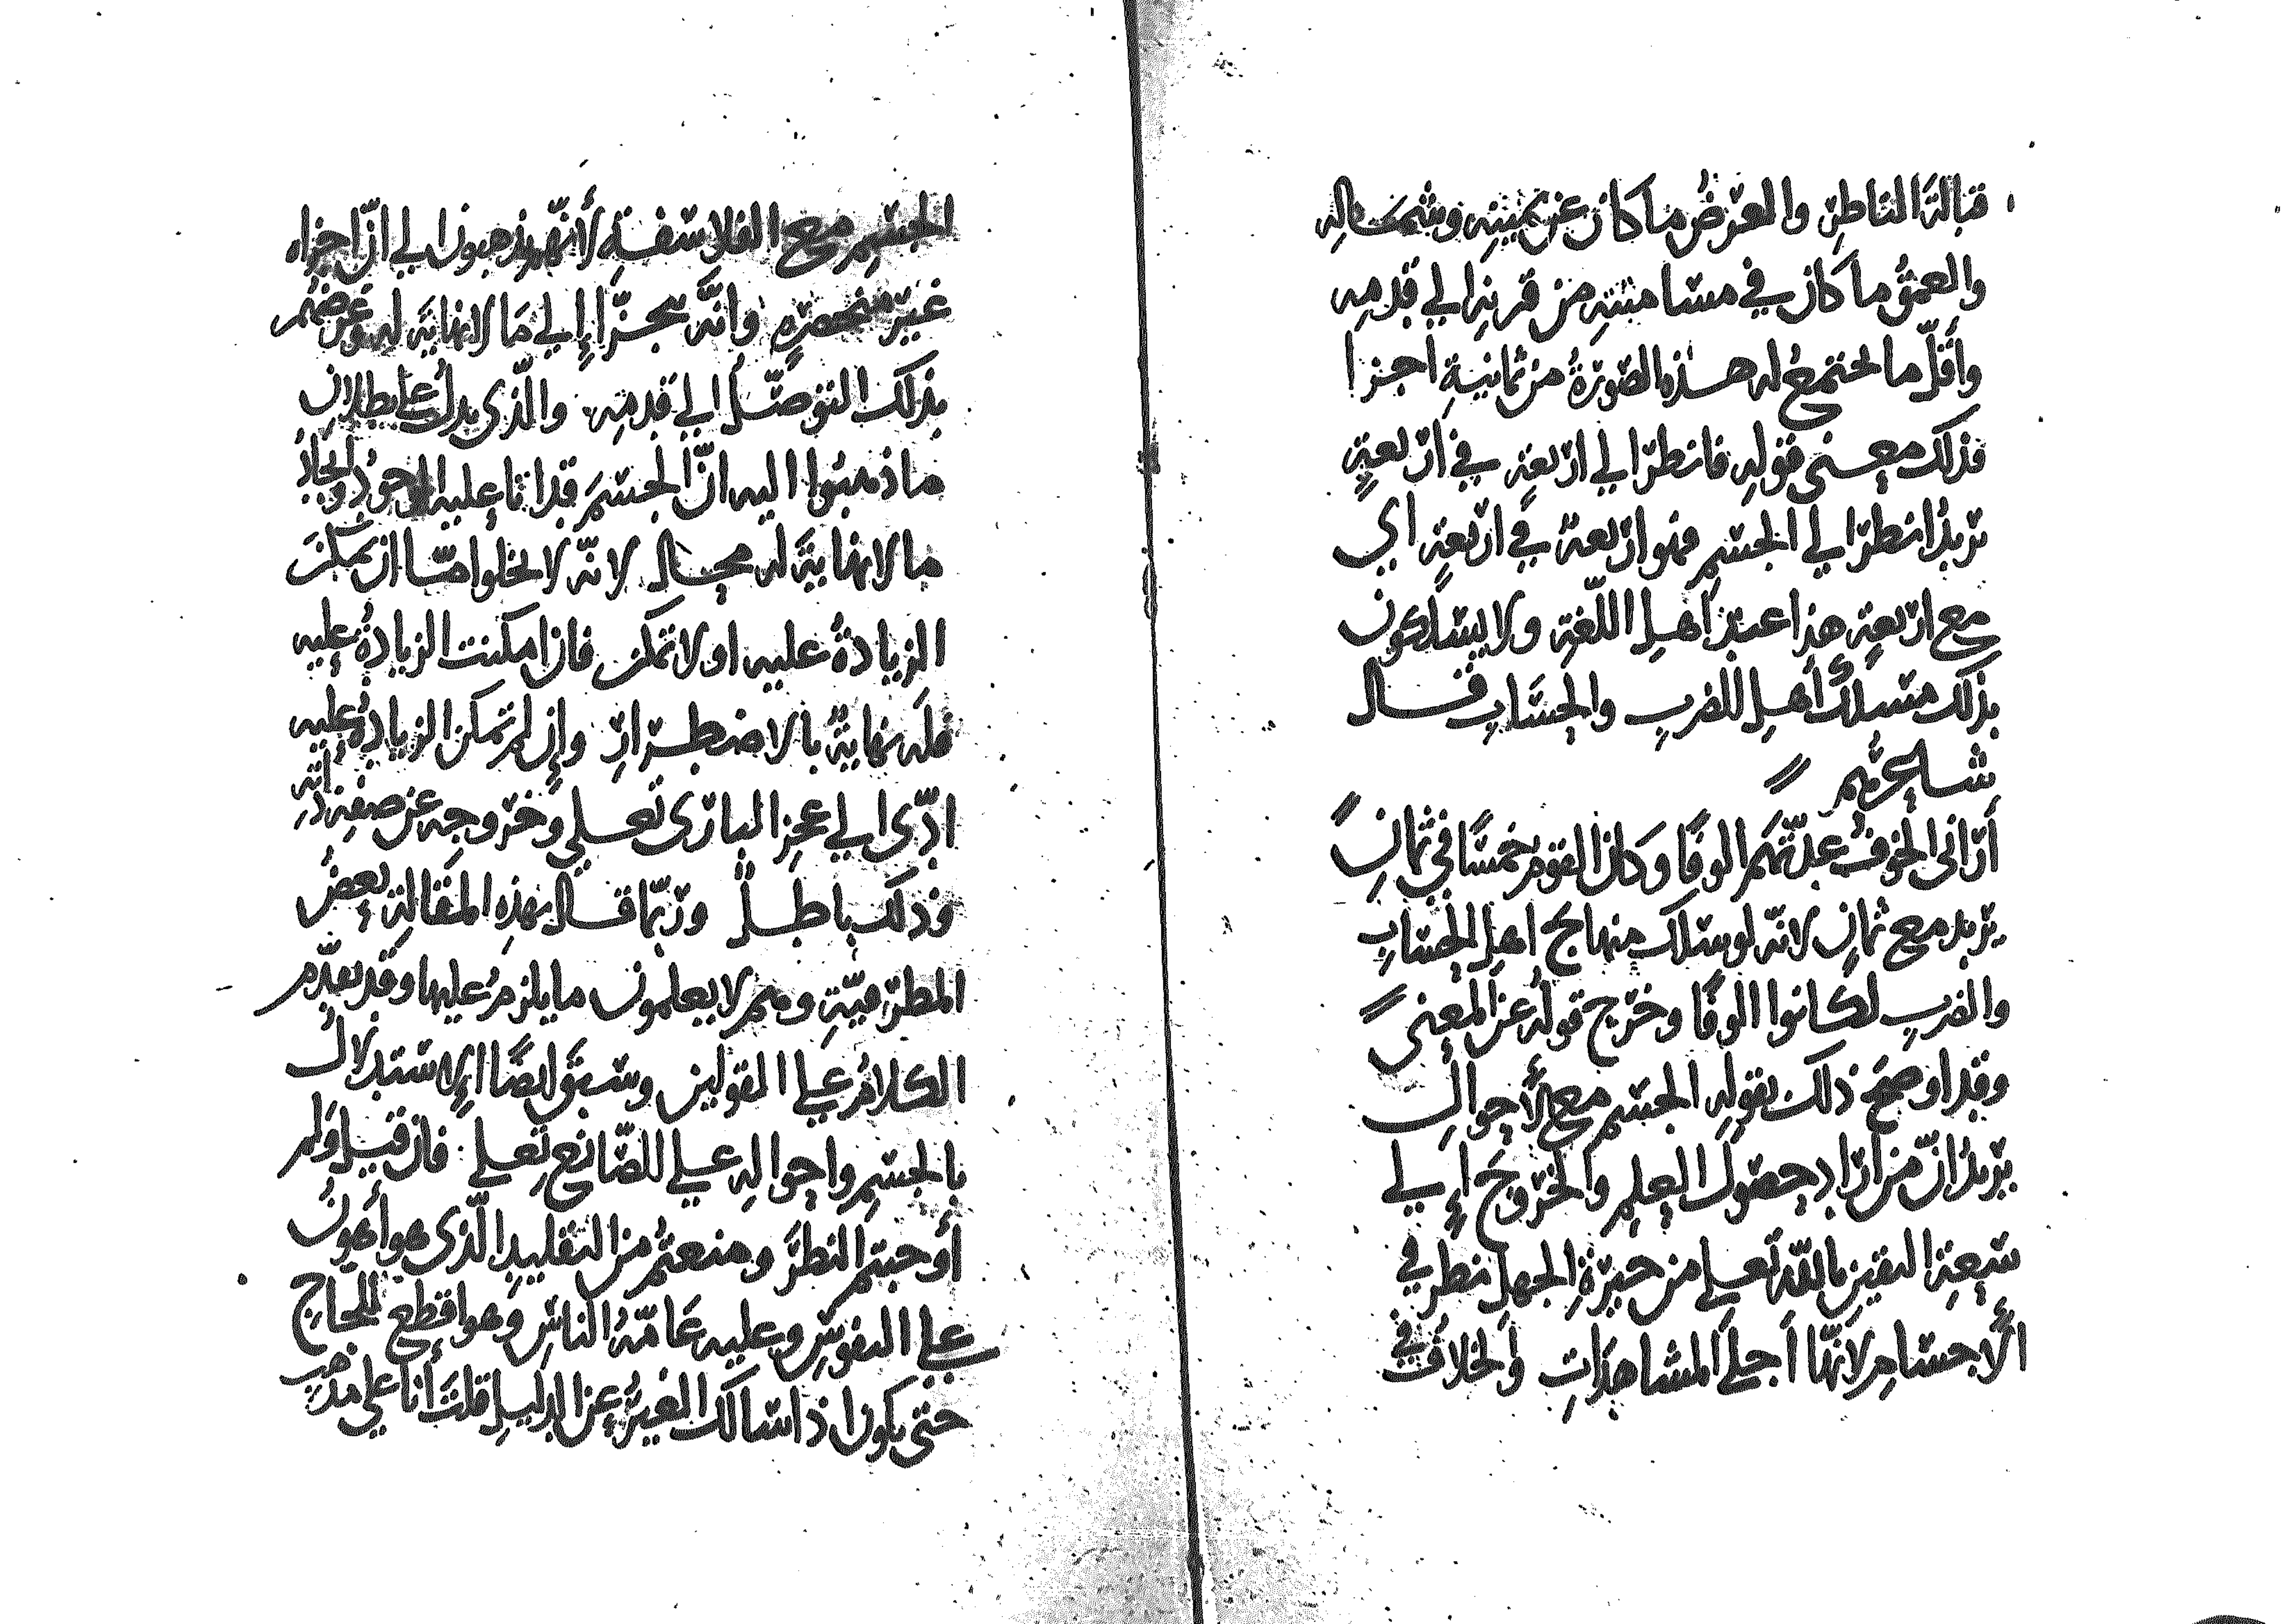 قبالة الناظر والعرض ما كان عن يمينه وشماله
والعمق ما كان في مسامتته من قرنه الي قدمه
وأقلّ ما تجتمع له هذه الصورة من ثمانية اجزا
فذلك معنى قوله فانظر الي اربعة في اربعةٍ
يريد انظر الي الجسم فهو اربعة في اربعة اي
مع اربعةٍ هذا عند أهل اللّغة ولا يسلكون
بذلك مسلك أهل الضرب والحساب قال
شاعرهم
أراني الخوفُ عدّتهم الوفًا وكان القوم خمسًا في ثمانِ
يريد مع ثمانٍ لانّه لو سلك منهاج اهل الحساب
والضرب لكانوا الوفًا وخرج قوله عن المعنى
وقد اوضح ذلك بقوله الجسم مع الأحوال
يريد انّ من اراد حصول العلم والخروج إلي
سعة اليقين بالله تعلي من حيرة الجهل نظر في
الأجسام لانّها أجلي المشاهدات والخلاف في
الجسم مع الفلاسفة لأنّهم يذهبون الي انّ اجزاه
غير منحصرةٍ وانّه يتجزّا إلي ما لا نهاية له وغرضهم
بذلك التوصّل الي قدمه والّذى يدل علي بطلان
ما ذهبوا اليه انّ الجسم قد اتا عليه الوجود وايجاد
ما لا نهاية له محال لانّه لا يخلوا امّا ان تمكن
الزيادة عليه او لا تمكن فان امكنت الزيادة عليه
فله نهاية بالاضطرار وإن لم تمكن الزيادة عليه
ادّى الي عجز البارى تعلي وخروجه عن صفة ذاته
وذلك باطلٌ وربّما قال بهذه المقالة بعض
المطرّفيّة وهم لا يعلمون ما يلزم عليها وقد تقدّم
الكلام علي القولين وسبق ايضًا الإستدلال
بالجسم واحواله علي الصّانع تعلي فان قيل ولم
أوجبتم النظر ومنعتم من التقليد الّذى هو أهون
علي النفوس وعليه عامّة الناس وهو اقطع للحجاج
حتى يكون اذا سالك الغير عن الدليل قلت أنا علي مذهب